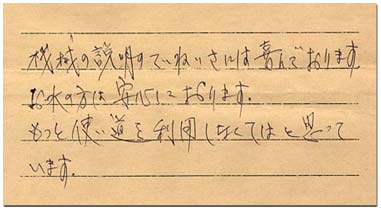 機械の説明のていねいさには喜んでおります
お水の方は安心しております。
もっと使い道を利用しなくてはと思って
います。